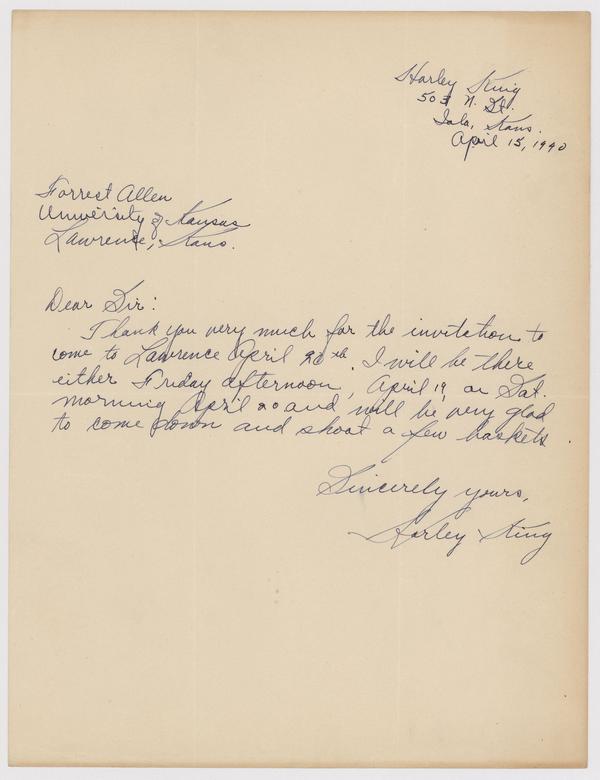 Harley King
503 N. St.
Iola, Kans.
April 15, 1940
Forrest Allen
University of Kansas
Lawrence, Kans.
Dear Sir:
Thank you very much for the invitation to
come to Lawrence April 20th. I will be there
either Friday afternoon, April 19, or Sat.
morning April 20 and will be very glad
to come down and shoot a few baskets.
Sincerely yours,
Harley King